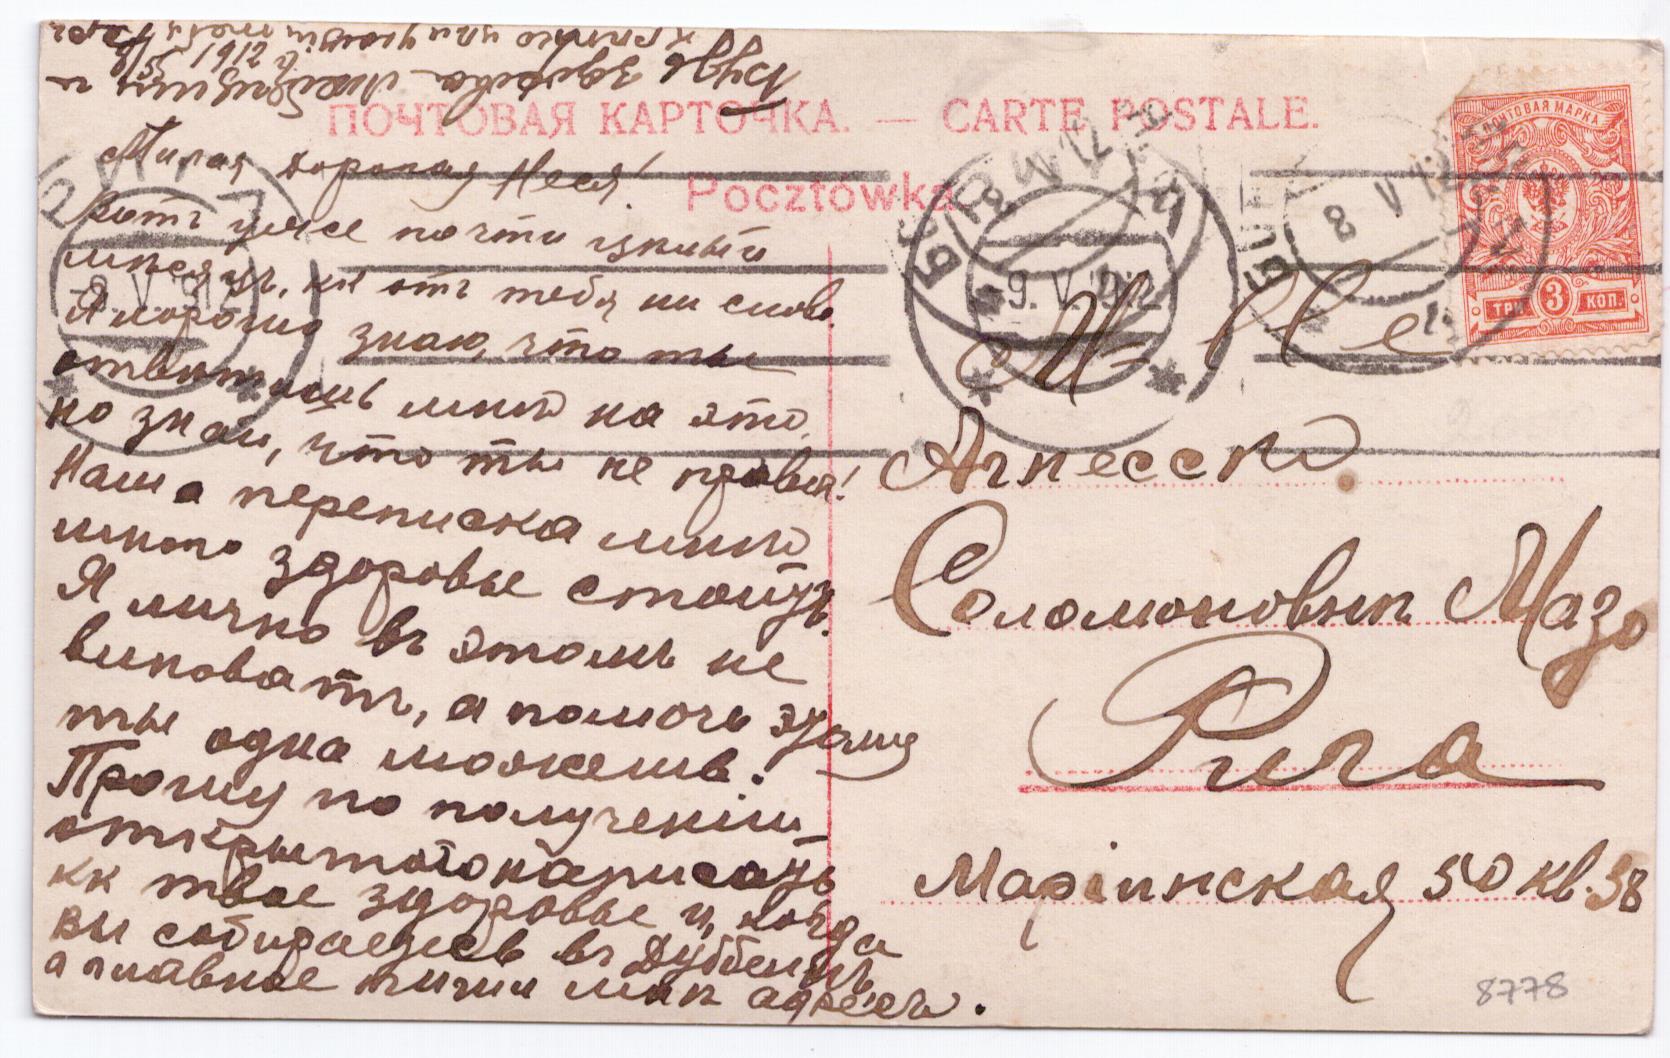 ПОЧТОВАЯ КАРТОЧКА. — CARTE POSTALE.
Pocztówka
Милая дорогая Неся!
Вотъ уже почти цѣлый
мѣсяцъ, кк отъ тебя ни слова.
Я хорошо знаю, что ты
отвѣтишь мнѣ на это,
но знай, что ты не права!
Наша переписка мнѣ
много здоровье стоитъ.
Я лично въ этомъ не
виноватъ, а помочь этому
ты одна можешь.
Прошу по полученіи
открытого написать
кк твое здоровье и, когда
вы собираетесь въ Дуббельнъ,
а главное пиши мнѣ адресъ.
Будь здорова
крѣпко цѣлующій тебя
1912
ПОЧТОВАЯ МАРКА
ТРИ 3 КОП.
8 V 12
9. V. 12
Агнессѣ
Соломоновнѣ Мазо
Рига
Маріинская 50 кв. 38
8778